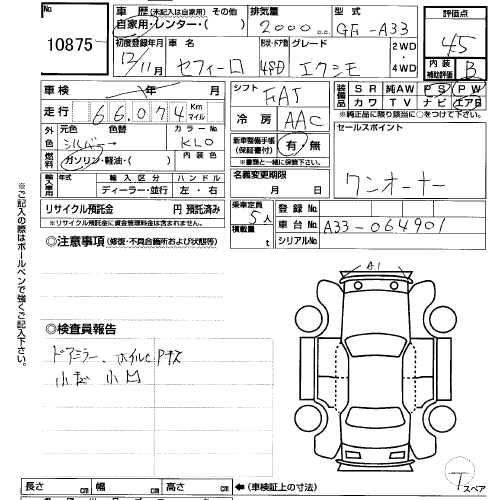 No.
10875
車歴 (未記入は自家用) その他
自家用・レンター・( )
排気量
2000 cc
型式
GF-A33
評価点
4.5
初度登録年月
12/11月
車名
セフィーロ
形状・ドア数
4SD
グレード
エクシモ
2WD
4WD
内装
補助評価
B
車検 年 月
走行 66,074 Km マイル
シフト
FAT
装備品
SR 純AW PS PW
カワ TV ナビ エアB
※純正品に限り該当に○をつけて下さい。
外色
元色 色替
シルバー→
カラーNo
KL0
冷房
AAC
セールスポイント
ワンオーナー
燃料
ガソリン・軽油・( )
内装色
新車整備手帳
(保証書付)
有・無
※書類と一緒に保管下さい。
輸入車用
年式
輸入区分
ディーラー・並行
ハンドル
左・右
名義変更期限
月 日
リサイクル預託金 円 預託済み
※リサイクル預託金に資金管理料金は含まれません。
乗車定員
5人
積載量
t
登録No
車台No A33-064901
シリアルNo
◎注意事項 (修復・不具合箇所および状態等)
A1
◎検査員報告
ドアミラー、ホイルC Pキズ
小キズ 小凹
※ご記入の際はボールペンで強くご記入下さい。
長さ cm 幅 cm 高さ cm ←(車検証上の寸法)
T
スペア